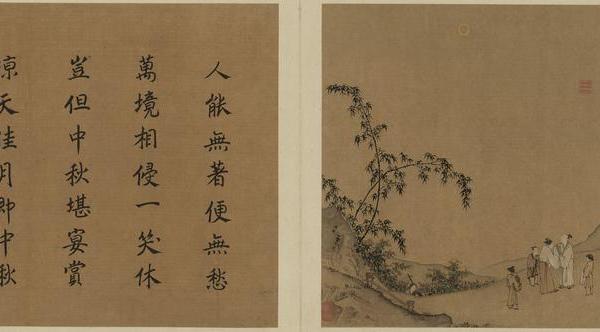 人能無著便無愁
萬境相侵一笑休
豈但中秋堪宴賞
涼天佳月即中秋